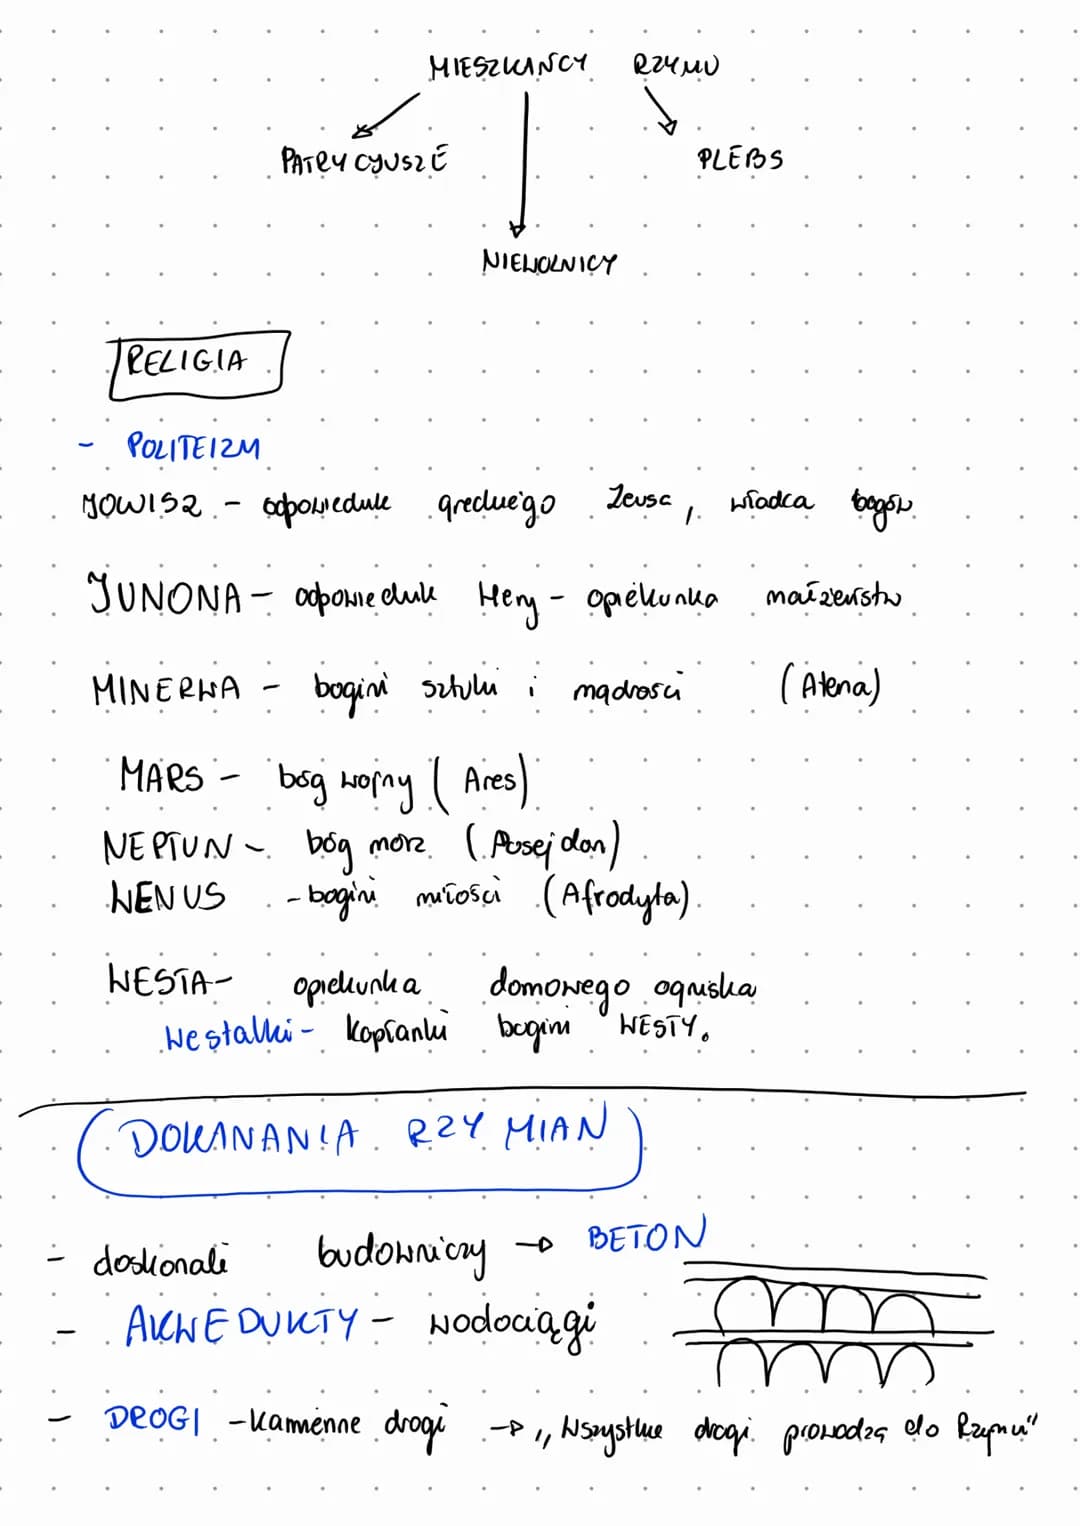 MIESZKAŃCY RZYMU
PATRYCYUSZE PLEBS
NIEWOLNICY
RELIGIA
- POLITEIZM
JOWISZ - odpowiednik greckiego Zeusa, władca bogów
JUNONA - odpowiednik Hery - opiekunka małżeństw
MINERWA - bogini sztuki i mądrości (Atena)
MARS - bóg wojny (Ares)
NEPTUN - bóg mórz (Posejdon)
WENUS - bogini miłości (Afrodyta)
WESTA - opiekunka domowego ogniska
Westalki - kapłanki bogini WESTY.
DOKANANIA RZYMIAN
- doskonali budowniczy → BETON
- AKWEDUKTY - wodociągi
- DROGI - kamienne drogi → „Wszystkie drogi prowadzą do Rzymu"